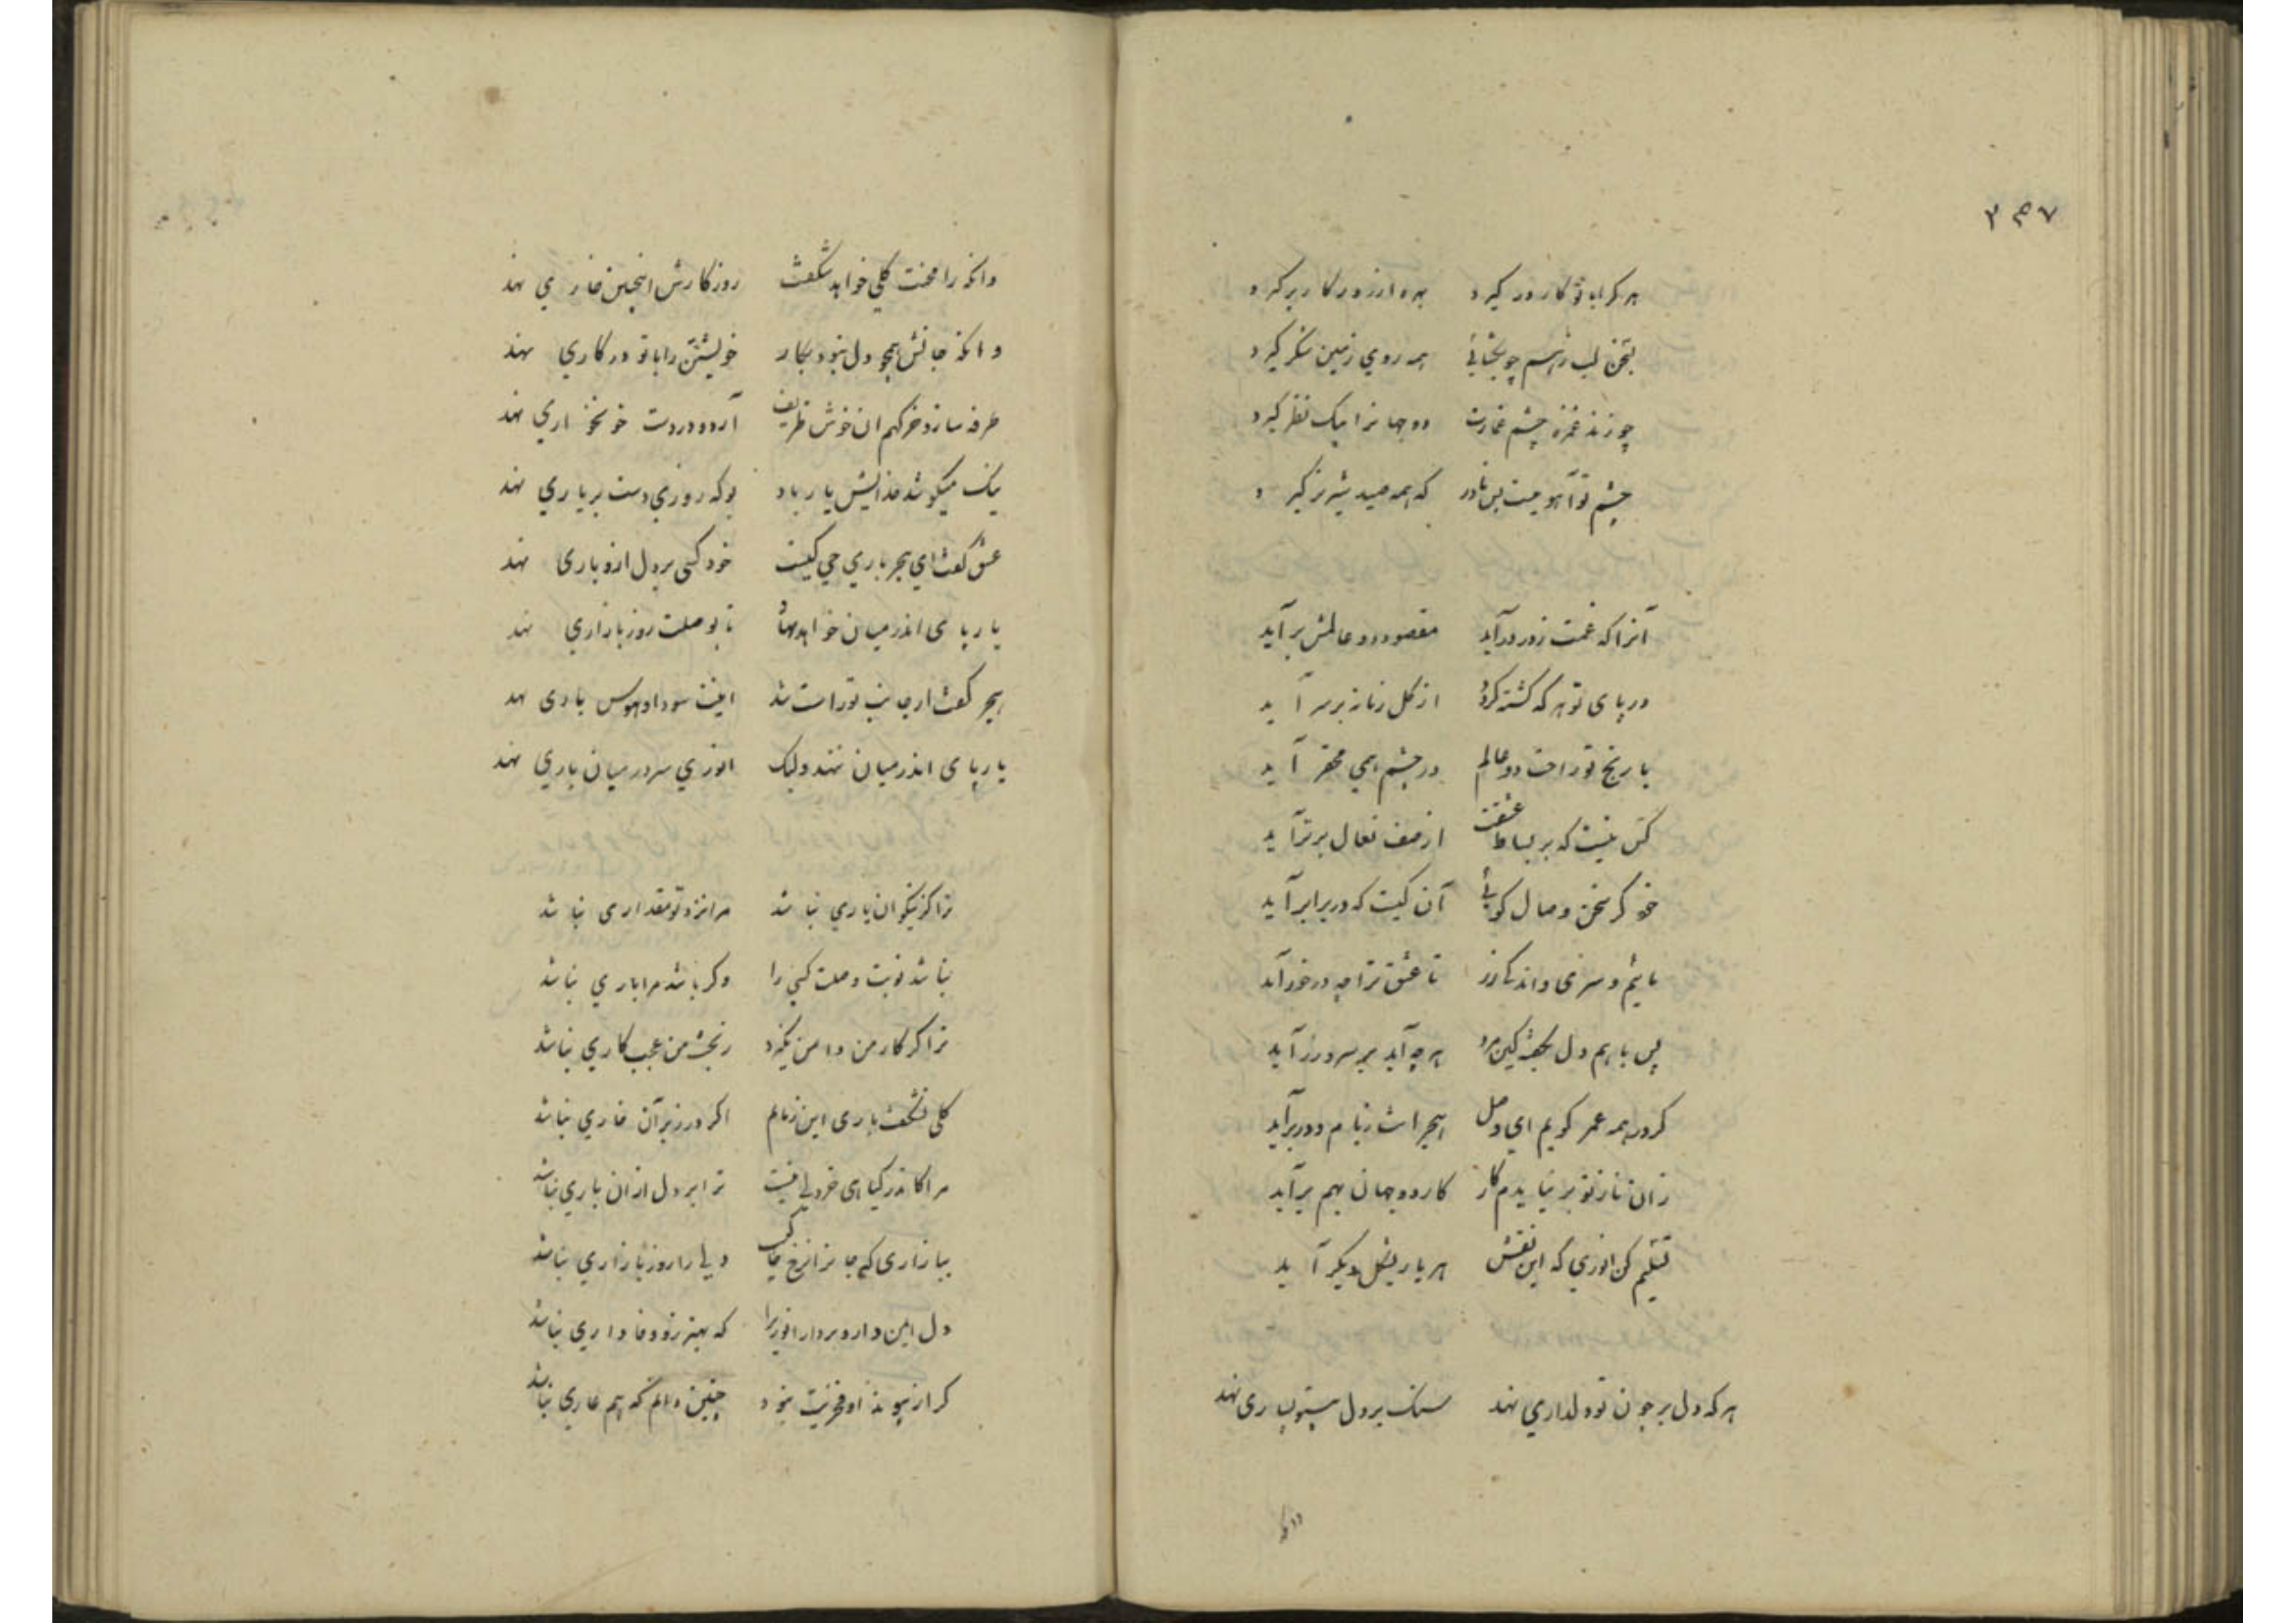 ۳۵۷
هر کرا با تو کار در گیرد بهره از روزگار برگیرد
بسخن لب ز هم چو بگشائی همه روی زمین شکر گیرد
چو زند غمزه چشم غمازت دو جهانرا بیک نظر گیرد
چشم تو آهوییست بس نادر که همه صید شیر نر گیرد
آنرا که غمت ز در درآید مقصود دو عالمش برآید
در پای تو هر که کشته گردد از کل زمانه بر سر آید
با رنج تو راحت دو عالم در چشم همی مختصر آید
کس نیست که بر بساط عشقت از صف نعال برتر آید
خود گر سخن وصال گوئی آن کیست که در برابر آید
مائیم و سری و اندک زر تا عشق ترا چه درخور آید
پس با همه دل بگفته کین مرد هر چه آید بر سر و زر آید
گر در همه عمر گویم ای وصل هجرانت ز بام و در برآید
زان ناز تو بر نیایدم کار کار دو جهان بهم برآید
تسلیم کن انوری که این نقش هر بار بشکل دیگر آید
هر که دل بر چون تو دلداری نهد سنگ بر دل بیتو بسیاری نهد
وانک
وانکه را محنت گلی خواهد شکفت روزگارش اینچنین خاری نهد
وانکه جانش همچو دل نبود بکار خویشتن را با تو در کاری نهد
طرفه سازد خر کهم ان خوش ظریف آرد و در دست خونخواری نهد
نیک میکوشد خدایش یار باد بو که روزی دست بر یاری نهد
عشق گفت ای هجر باری حی کیست خود کسی بر دل ازو باری نهد
یار پای اندر میان خواهد نهاد تا بوصلت روز بازاری نهد
هجر گفت ار جانب تو راست شد اینت سودا و هوس باری نهد
یار پای اندر میان ننهد ولیک انوری سر در میان باری نهد
ترا کز نیکوان یاری نباشد مرا نزد تو مقداری نباشد
نباشد نوبت وصلت کسی را وگر باشد مرا باری نباشد
ترا گر کار من دامن نگیرد ز بخت من عجب کاری نباشد
گلی نشکفت باری این زمانم اگر در زیر آن خاری نباشد
مرا کاندر کیا ای خر دلی نیست ترا بر دل ازان باری نباشد
ببازاری که جانرا نرخ خاک دلی را روز بازاری نباشد
دل این دارد بردار انوری را که بهتر زو وفاداری نباشد
گر از پیوند او فخریت نبود چنین دانم که هم عاری نباشد